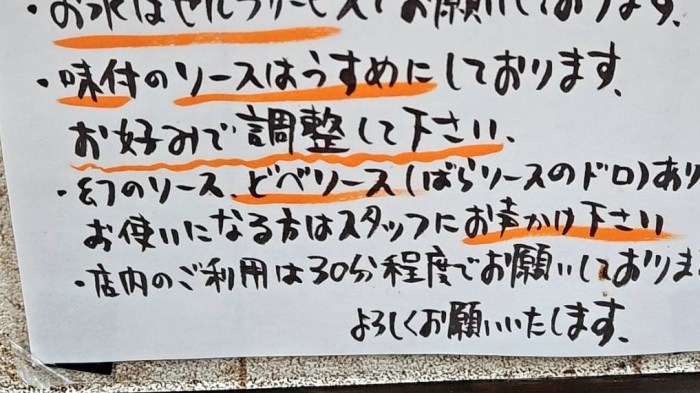 ・お水はセルフサービスでお願いしております。
・味付のソースはうすめにしております。
お好みで調整して下さい。
・幻のソース、どべソース(ばらソースのドロ)あり
お使いになる方はスタッフにお声かけ下さい
・店内のご利用は30分程度でお願いしておりま
よろしくお願いいたします。